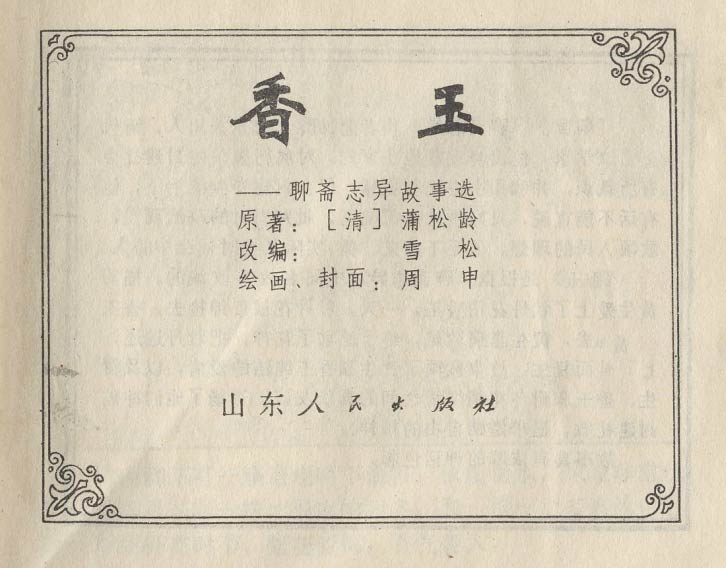 香玉
聊斋志异故事选
原著：［清］蒲松龄
改编：雪松
绘画、封面：周申
山东人民出版社